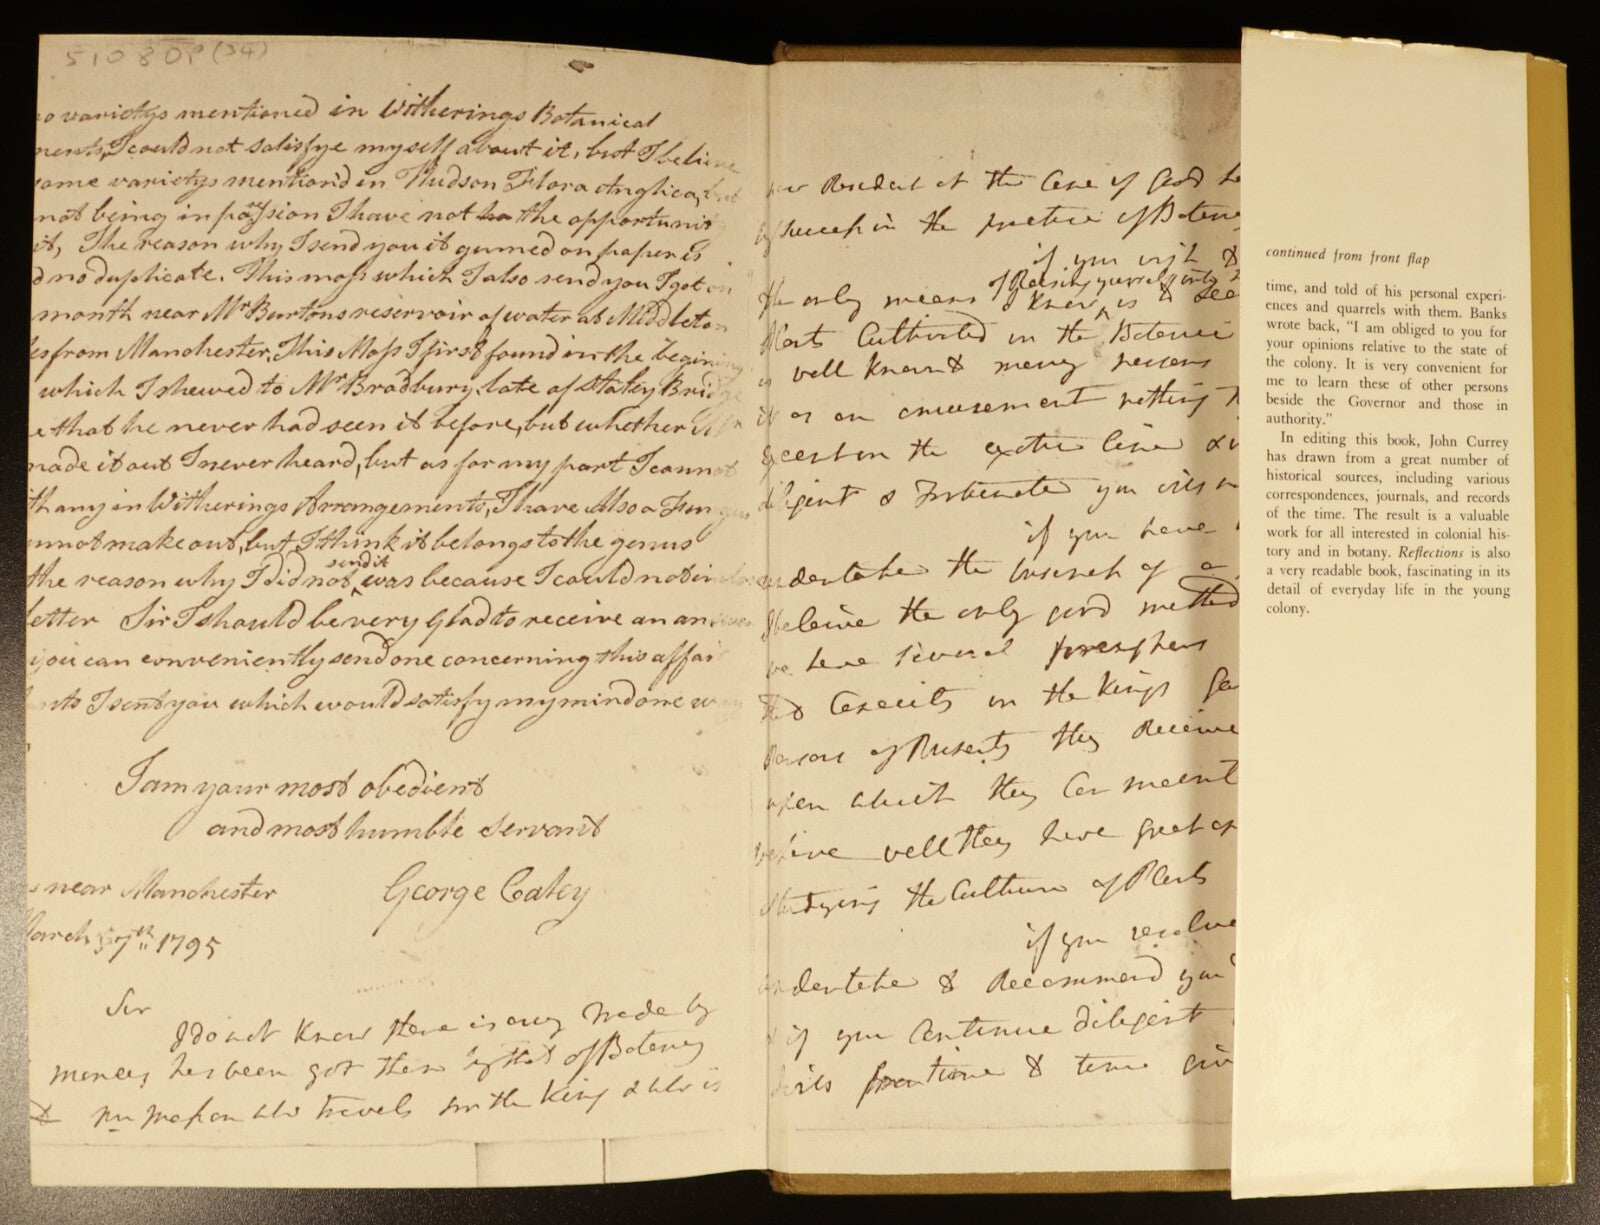 510808 (34)
varietys mentioned in Witherings Botanical
I could not satisfye myself about it, but I believe
varietys mentiond in Hudson Flora Anglica, but
not being in possion I have not the opportunit
it, The reason why I send you it gumed on paper is
no duplicate. This moss which I also send you I got on
month near Mr Burtons reservoir of water at Middleton
from Manchester. This Moss I first found in the begining
which I shewed to Mr Bradbury late of Staley Bridge
that he never had seen it before, but whether
made it out I never heard, but as for my part I cannot
any in Witherings Arrangements, I have Also a Fungus
cannot make out, but I think it belongs to the genus
the reason why I did not send it was because I could not
letter Sir I should be very Glad to receive an answer
you can conveniently send one concerning this affair
I sent you which would satisfy my mind one way
I am your most obedient
and most humble Servant
near Manchester George Caley
March 7th 1795
Sir
I do not know there is any trade by
money has been got than by that of Botany
& Mr Masson who travels for the King & who is
Resident at the Cape of Good
success in the practice of Botany
if you wish
of Raising yourself
the only means I know is to
Plants Cultivated in the Botanic
well known & many persons
as an amusement nothing
Except in the exotic line
diligent & Fortunate you will
if you have
undertake the business of a
I beleive the only good method
we have several foreigners
in the Kings
they Receive
upon which they Can
before well they have great
studying the Culture of Plants
if you resolve
undertake to Recommend you
if you Continue diligent
& time
continued from front flap
time, and told of his personal experi-
ences and quarrels with them. Banks
wrote back, “I am obliged to you for
your opinions relative to the state of
the colony. It is very convenient for
me to learn these of other persons
beside the Governor and those in
authority.”
In editing this book, John Currey
has drawn from a great number of
historical sources, including various
correspondences, journals, and records
of the time. The result is a valuable
work for all interested in colonial his-
tory and in botany. Reflections is also
a very readable book, fascinating in its
detail of everyday life in the young
colony.